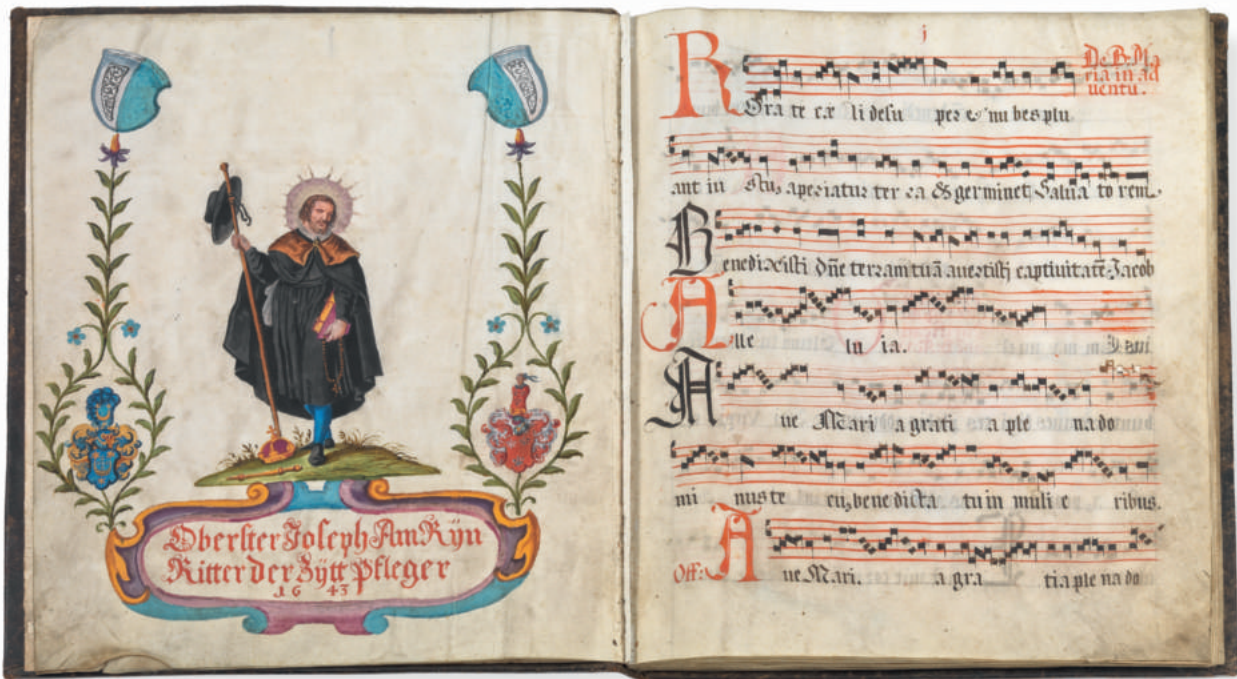 Oberster Joseph Am Rÿn
Ritter der Zÿtt Pfleger
1643
j
De B. Ma
ria in ad
uentu.
ROrate cæ li desu per & nu bes plu
ant iu stu, aperiatur ter ra & germinet Salua to rem.
Benedixisti Dñe terram tuã auertisti captiuitatẽ Jacob
Alle lu ia.
Aue Mari a grati a ple na do
mi nus te cũ, bene dicta tu in muli e ribus.
Off: Aue Mari. a gra tia ple na do